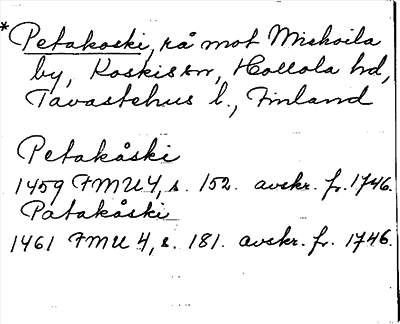 *Petakoski, rå mot Mishoila
by, Koskis sn, Hollola hd,
Tavastehus l., Finland
Petakåski
1459 FMU 4, s. 152. avskr. fr. 1746.
Patakåski
1461 FMU 4, s. 181. avskr. fr. 1746.